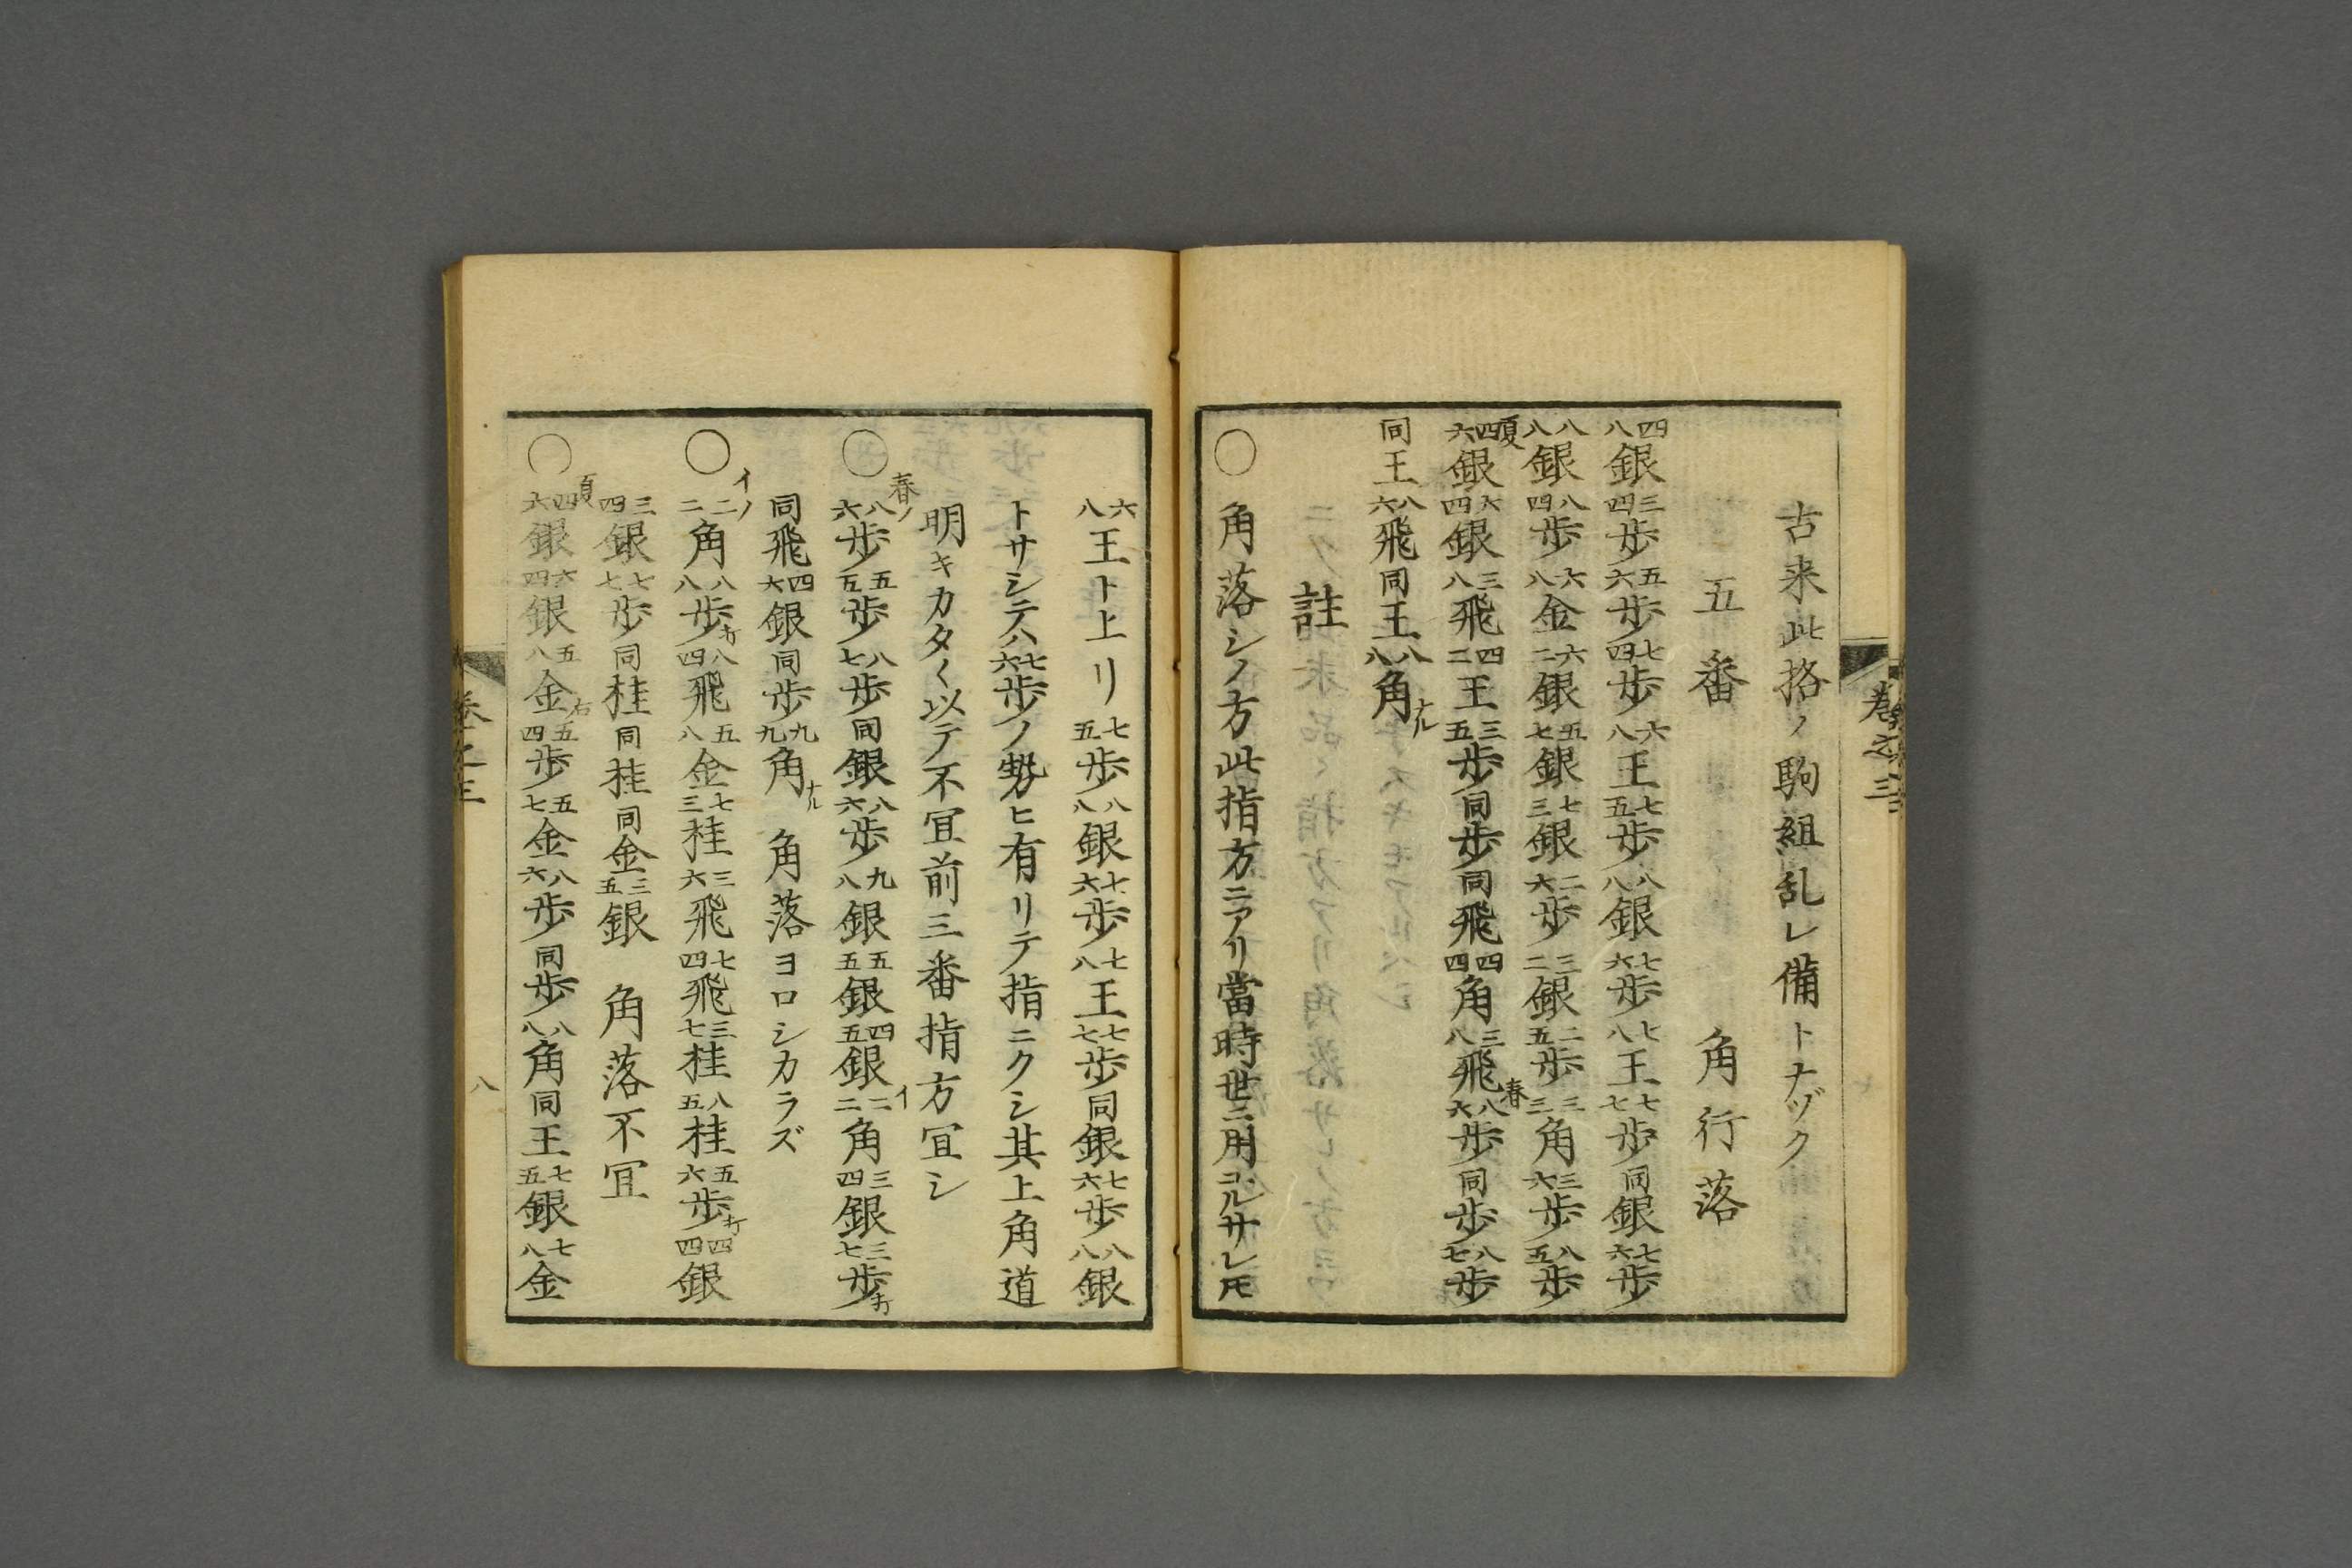 古来此挌ノ駒組乱レ備トナヅク
五番　角行落
八四銀四三歩六五歩四七歩八六王五七歩八八銀六七歩八七王七七歩同銀六七歩
八八銀四八歩八六金二六銀七五銀三七銀六二歩二三銀五二歩三三角六三歩五八歩
夏六四銀四六銀八三飛二四王五三歩同歩同飛四四角八三飛春六八歩同歩七八歩
同王六八飛同王八八角ナル
註
○角落シノ方此指方ニアリ當時世ニ用ヱルサレ𪜈
八六王ト上リ五七歩八八銀六七歩八七王七七歩同銀六七歩八八銀
トサシテハ六七歩ノ勢ヒ有リテ指ニクシ其上角道
明キカタく以テ不冝前三番指方冝シ
○春ノ六八歩五五歩七八歩同銀六八歩八九銀五五銀五四銀イ二二角四三銀七三歩打
同飛六四銀同歩九九角ナル　角落ヨロシカラズ
○イノ二二角八八歩打四八飛八五金三七桂六三飛四七飛七三桂五八桂六五歩打四四銀
四三銀七七歩同桂同桂同金五三銀　角落不冝
○夏六四銀四六銀八五金右四五歩七五金六八歩同歩八八角同王五七銀八七金
卷之三
卷之三
八